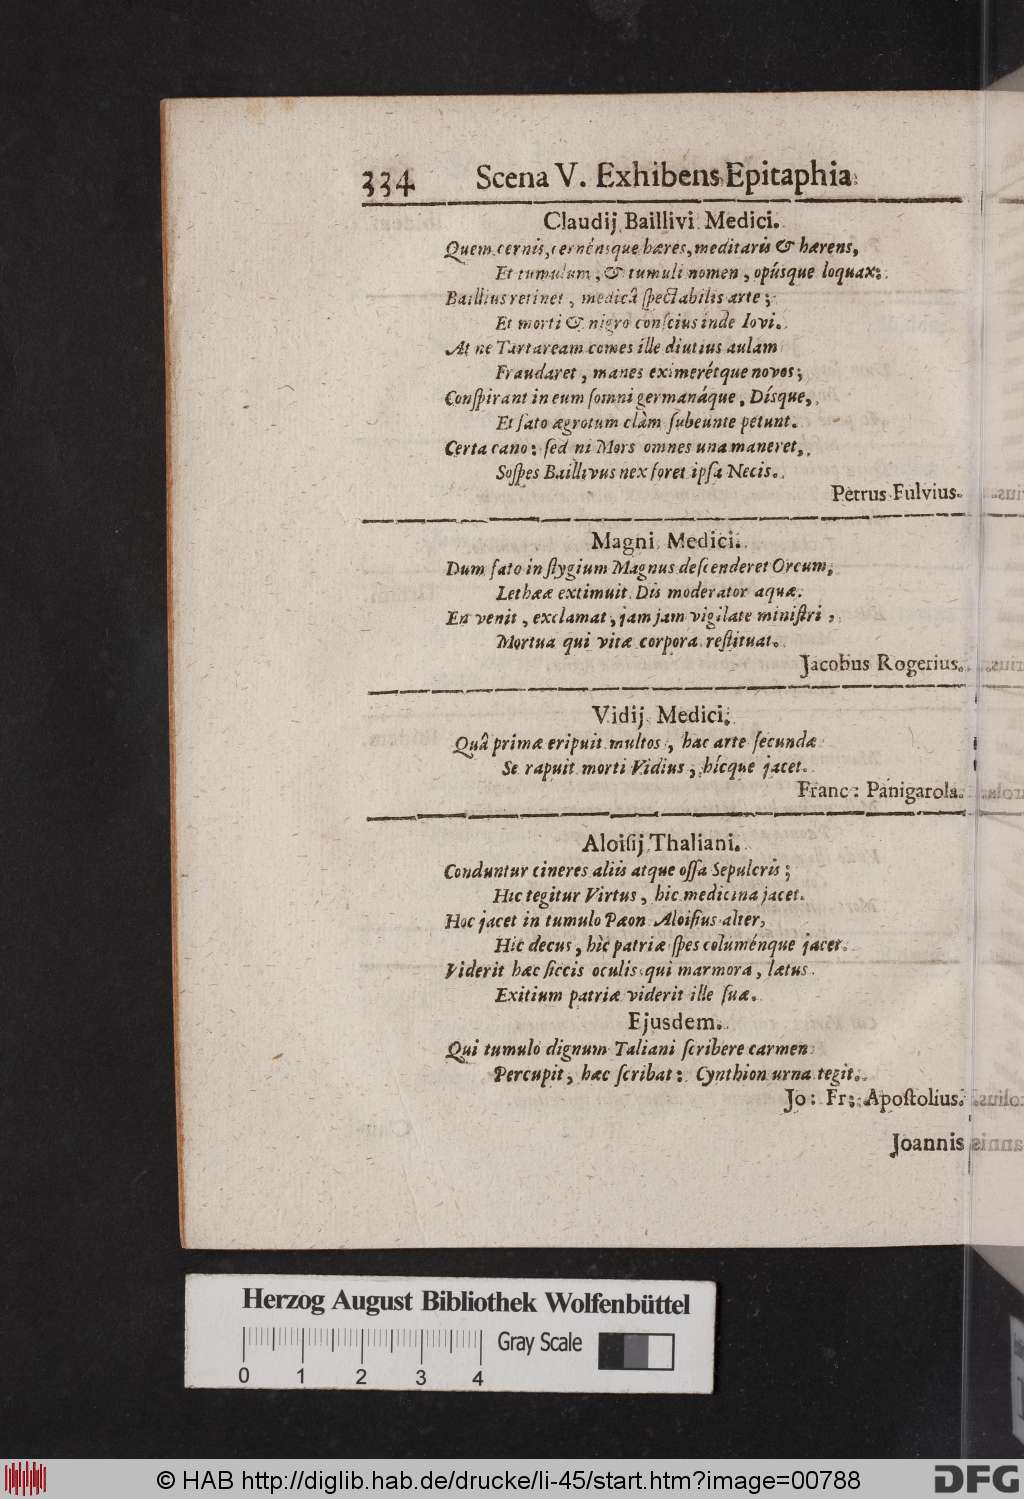 334 Scena V. Exhibens Epitaphia
Claudij Baillivi Medici.
Quem cernis, cernénsque hæres, meditaris & hærens,
Et tumulum, & tumuli nomen, opúsque loquax;
Baillius retinet, medicâ ſpectabilis arte;
Et morti & nigro conſcius inde Iovi.
At ne Tartaream comes ille diutius aulam
Fraudaret, manes eximerétque novos;
Conſpirant in eum ſomni germanáque, Dísque,
Et fato ægrotum clàm ſubeunte petunt.
Certa cano: ſed ni Mors omnes una maneret,
Soſpes Baillivus nex foret ipſa Necis.
Petrus Fulvius.
Magni Medici.
Dum fato in ſtygium Magnus deſcenderet Orcum,
Lethææ extimuit Dis moderator aquæ.
En venit, exclamat, jam jam vigilate miniſtri,
Mortua qui vitæ corpora reſtituat.
Jacobus Rogerius.
Vidij Medici.
Quâ primæ eripuit multos, hac arte ſecundæ
Se rapuit morti Vidius, hícque jacet.
Franc: Panigarola.
Aloiſij Thaliani.
Conduntur cineres aliis atque oſſa Sepulcris;
Hic tegitur Virtus, hic medicina jacet.
Hoc jacet in tumulo Pæon Aloiſius alter,
Hic decus, hìc patriæ ſpes columénque jacet.
Viderit hæc ſiccis oculis qui marmora, lætus
Exitium patriæ viderit ille ſuæ.
Ejusdem.
Qui tumulo dignum Taliani ſcribere carmen
Percupit, hæc ſcribat: Cynthion urna tegit.
Jo: Fr: Apoſtolius.
Joannis
Herzog August Bibliothek Wolfenbüttel
Gray Scale
0 1 2 3 4
© HAB http://diglib.hab.de/drucke/li-45/start.htm?image=00788
DFG